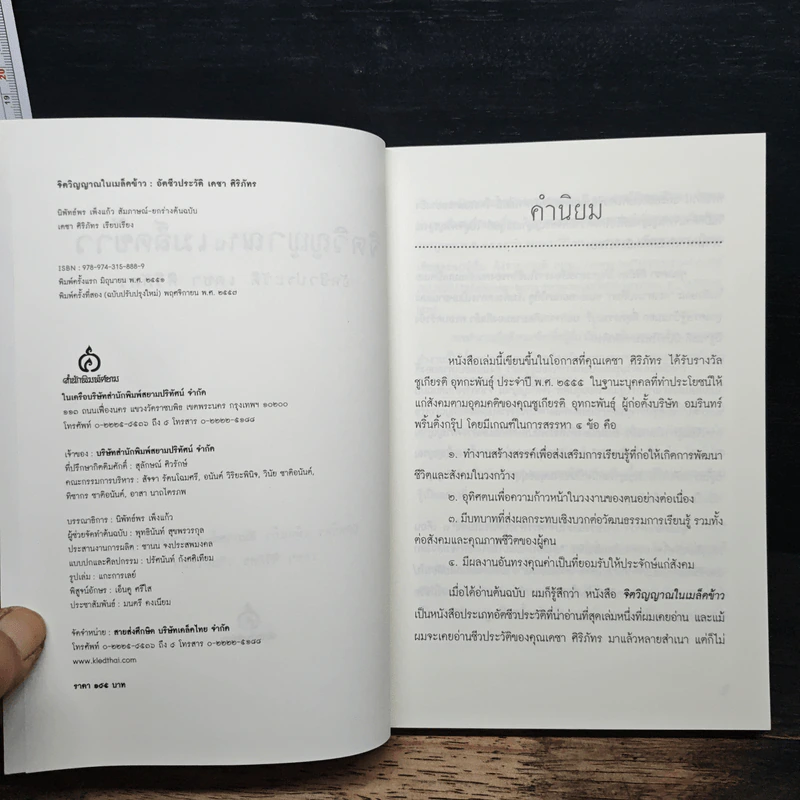 20
19
จิตวิญญาณในเมล็ดข้าว : อัตชีวประวัติ เดชา ศิริภัทร
นิพัทธ์พร เพ็งแก้ว สัมภาษณ์-ยกร่างต้นฉบับ
เดชา ศิริภัทร เรียบเรียง
ISBN : 978-974-315-888-9
พิมพ์ครั้งแรก มิถุนายน พ.ศ. ๒๕๕๑
พิมพ์ครั้งที่สอง (ฉบับปรับปรุงใหม่) พฤศจิกายน พ.ศ. ๒๕๕๗
สำนักพิมพ์สยาม
ในเครือบริษัทสำนักพิมพ์สยามปริทัศน์ จำกัด
๑๑๓ ถนนเฟื่องนคร แขวงวัดราชบพิธ เขตพระนคร กรุงเทพฯ ๑๐๒๐๐
โทรศัพท์ ๐-๒๒๒๕-๙๕๓๖ ถึง ๙ โทรสาร ๐-๒๒๒๒-๕๑๘๘
เจ้าของ : บริษัทสำนักพิมพ์สยามปริทัศน์ จำกัด
ที่ปรึกษากิตติมศักดิ์ : สุลักษณ์ ศิวรักษ์
คณะกรรมการบริหาร : สัจจา รัตนโฉมศรี, อนันต์ วิริยะพินิจ, วินัย ชาติอนันต์,
ทิชากร ชาติอนันต์, อาสา นาคไตรภพ
บรรณาธิการ : นิพัทธ์พร เพ็งแก้ว
ผู้ช่วยจัดทำต้นฉบับ : พุทธินันท์ สุขพรวรกุล
ประสานงานการผลิต : ชานน จงประสพมงคล
แบบปกและศิลปกรรม : ปรัตนันท์ กังคศิเทียม
รูปเล่ม : แกะการเลย์
พิสูจน์อักษร : เอ็นดู ศรีใส
ประชาสัมพันธ์ : มนตรี คงเนียม
จัดจำหน่าย : สายส่งศึกษิต บริษัทเคล็ดไทย จำกัด
โทรศัพท์ ๐-๒๒๒๕-๙๕๓๖ ถึง ๙ โทรสาร ๐-๒๒๒๒-๕๑๘๘
www.kledthai.com
ราคา ๑๙๕ บาท
คำนิยม
หนังสือเล่มนี้เขียนขึ้นในโอกาสที่คุณเดชา ศิริภัทร ได้รับรางวัล
ชูเกียรติ อุทกะพันธุ์ ประจำปี พ.ศ. ๒๕๕๕ ในฐานะบุคคลที่ทำประโยชน์ให้
แก่สังคมตามอุดมคติของคุณชูเกียรติ อุทกะพันธุ์ ผู้ก่อตั้งบริษัท อมรินทร์
พริ้นติ้งกรุ๊ป โดยมีเกณฑ์ในการสรรหา ๔ ข้อ คือ
๑. ทำงานสร้างสรรค์เพื่อส่งเสริมการเรียนรู้ที่ก่อให้เกิดการพัฒนา
ชีวิตและสังคมในวงกว้าง
๒. อุทิศตนเพื่อความก้าวหน้าในวงงานของตนอย่างต่อเนื่อง
๓. มีบทบาทที่ส่งผลกระทบเชิงบวกต่อวัฒนธรรมการเรียนรู้ รวมทั้ง
ต่อสังคมและคุณภาพชีวิตของผู้คน
๔. มีผลงานอันทรงคุณค่าเป็นที่ยอมรับให้ประจักษ์แก่สังคม
เมื่อได้อ่านต้นฉบับ ผมก็รู้สึกว่า หนังสือ จิตวิญญาณในเมล็ดข้าว
เป็นหนังสือประเภทอัตชีวประวัติที่น่าอ่านที่สุดเล่มหนึ่งที่ผมเคยอ่าน และแม้
ผมจะเคยอ่านชีวประวัติของคุณเดชา ศิริภัทร มาแล้วหลายสำเนา แต่ก็ไม่